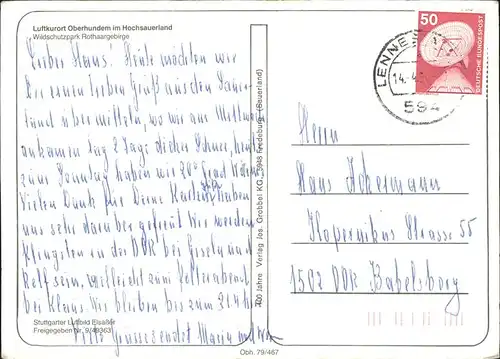 Luftkurort Oberhundem im Hochsauerland
Wildschutzpark Rothaargebirge
Lieber Hans! Heute möchten wir
Dir einen lieben Gruß aus dem Sauer-
land übermitteln, wo wir am Mittwoch
ankamen lag 2 Tage dicker Schnee, heute
zum Sonntag haben wir 20° Grad Wärme.
Vielen Dank für Deine Karte, haben
uns sehr darüber gefreut. Wir werden
Pfingsten in der DDR bei Gisela und
Rolf sein, vielleicht zum Polterabend
bei Klaus. Wir bleiben bis zum
Viele Grüsse sendet Maria und
Stuttgarter Luftbild Elsäßer
Freigegeben Nr. 9/49363
Obh. 79/467
100 Jahre Verlag Jos. Grobbel KG, 5948 Fredeburg (Sauerland)
50
DEUTSCHE BUNDESPOST
LENNE
14.-4.
594
Herrn
Hans Ackermann
Kopernikus Strasse 55
1502 DDR Babelsberg